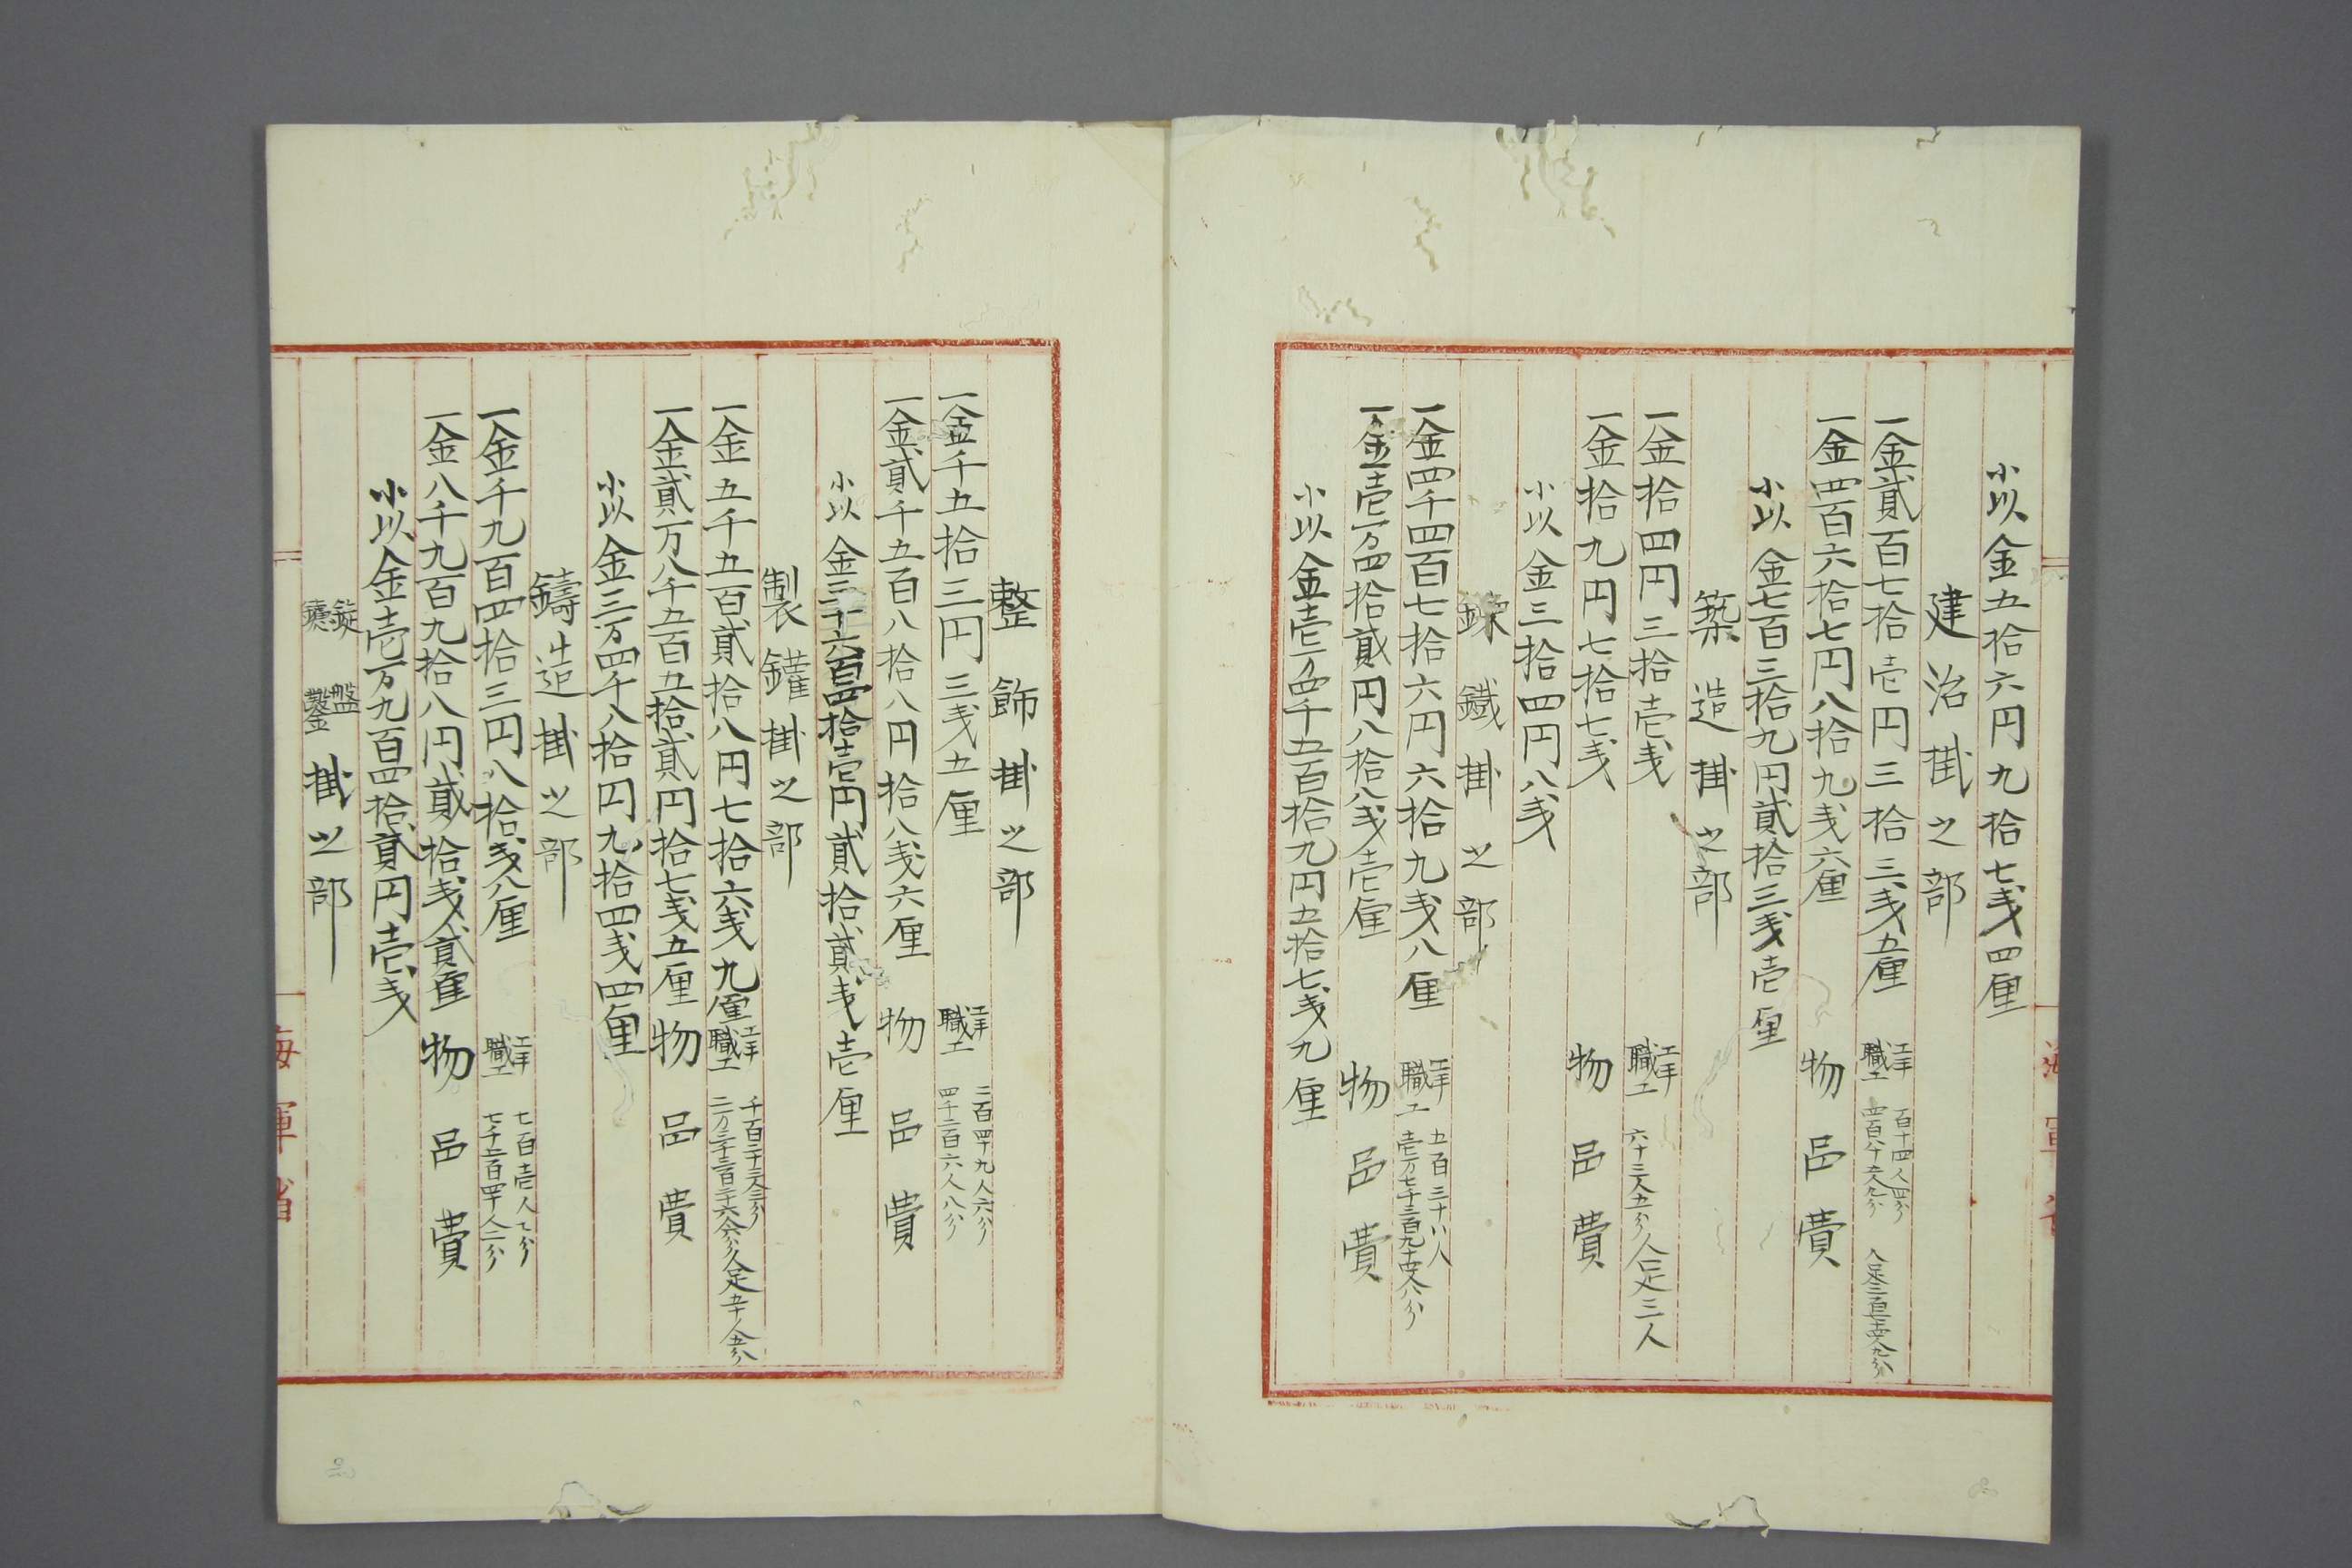 小以金五拾六円九拾七戔四厘
建治掛之部
一金貳百七拾壱円三拾三戔五厘 工手 百十四人四分 職工 四百八十五人九分 人足三百五十四人九分
一金四百六拾七円八拾九戔六厘 物品費
小以金七百三拾九円貳拾三戔壱厘
築造掛之部
一金拾四円三拾壱戔 工手 職工 六十三人五分 人足三人
一金拾九円七拾七戔 物品費
小以金三拾四円八戔
錬鐵掛之部
一金四千四百七拾六円六拾九戔八厘 工手 五百三十八人 職工 壱万七千三百九十四人八分
一金壱万四拾貳円八拾八戔壱厘 物品費
小以金壱万四千五百拾九円五拾七戔九厘
海軍省
整飾掛之部
一金千五拾三円三戔五厘 工手 三百四十九人六分 職工 四千二百六人八分
一金貳千五百八拾八円拾八戔六厘 物品費
小以金三千六百四拾壱円貳拾貳戔壱厘
製鑵掛之部
一金五千五百貳拾八円七拾六戔九厘 工手 千百三十三人三分 職工 人足五十人五分
一金貳万八千五百五拾貳円拾七戔五厘 物品費
小以金三万四千八拾円九拾四戔四厘
鑄造掛之部
一金千九百四拾三円八拾戔八厘 工手 七百壱人七分 職工 七千五百四十人二分
一金八千九百九拾八円貳拾戔貳厘 物品費
小以金壱万九百四拾貳円壱戔
錠盤 鑄鑿 掛之部
海軍省